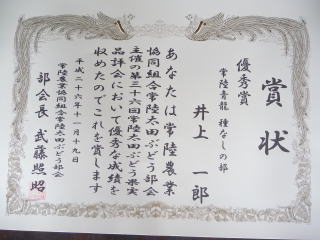 賞状
優秀賞
常陸青龍 種なしの部
井上 一郎
あなたは常陸農業
協同組合常陸太田ぶどう部会
主催の第三十六回常陸太田ぶどう果実
品評会において優秀な成績を
収めたのでこれを賞します
平成二十六年十一月十九日
常陸農業協同組合常陸太田ぶどう部会
部会長 武藤照昭